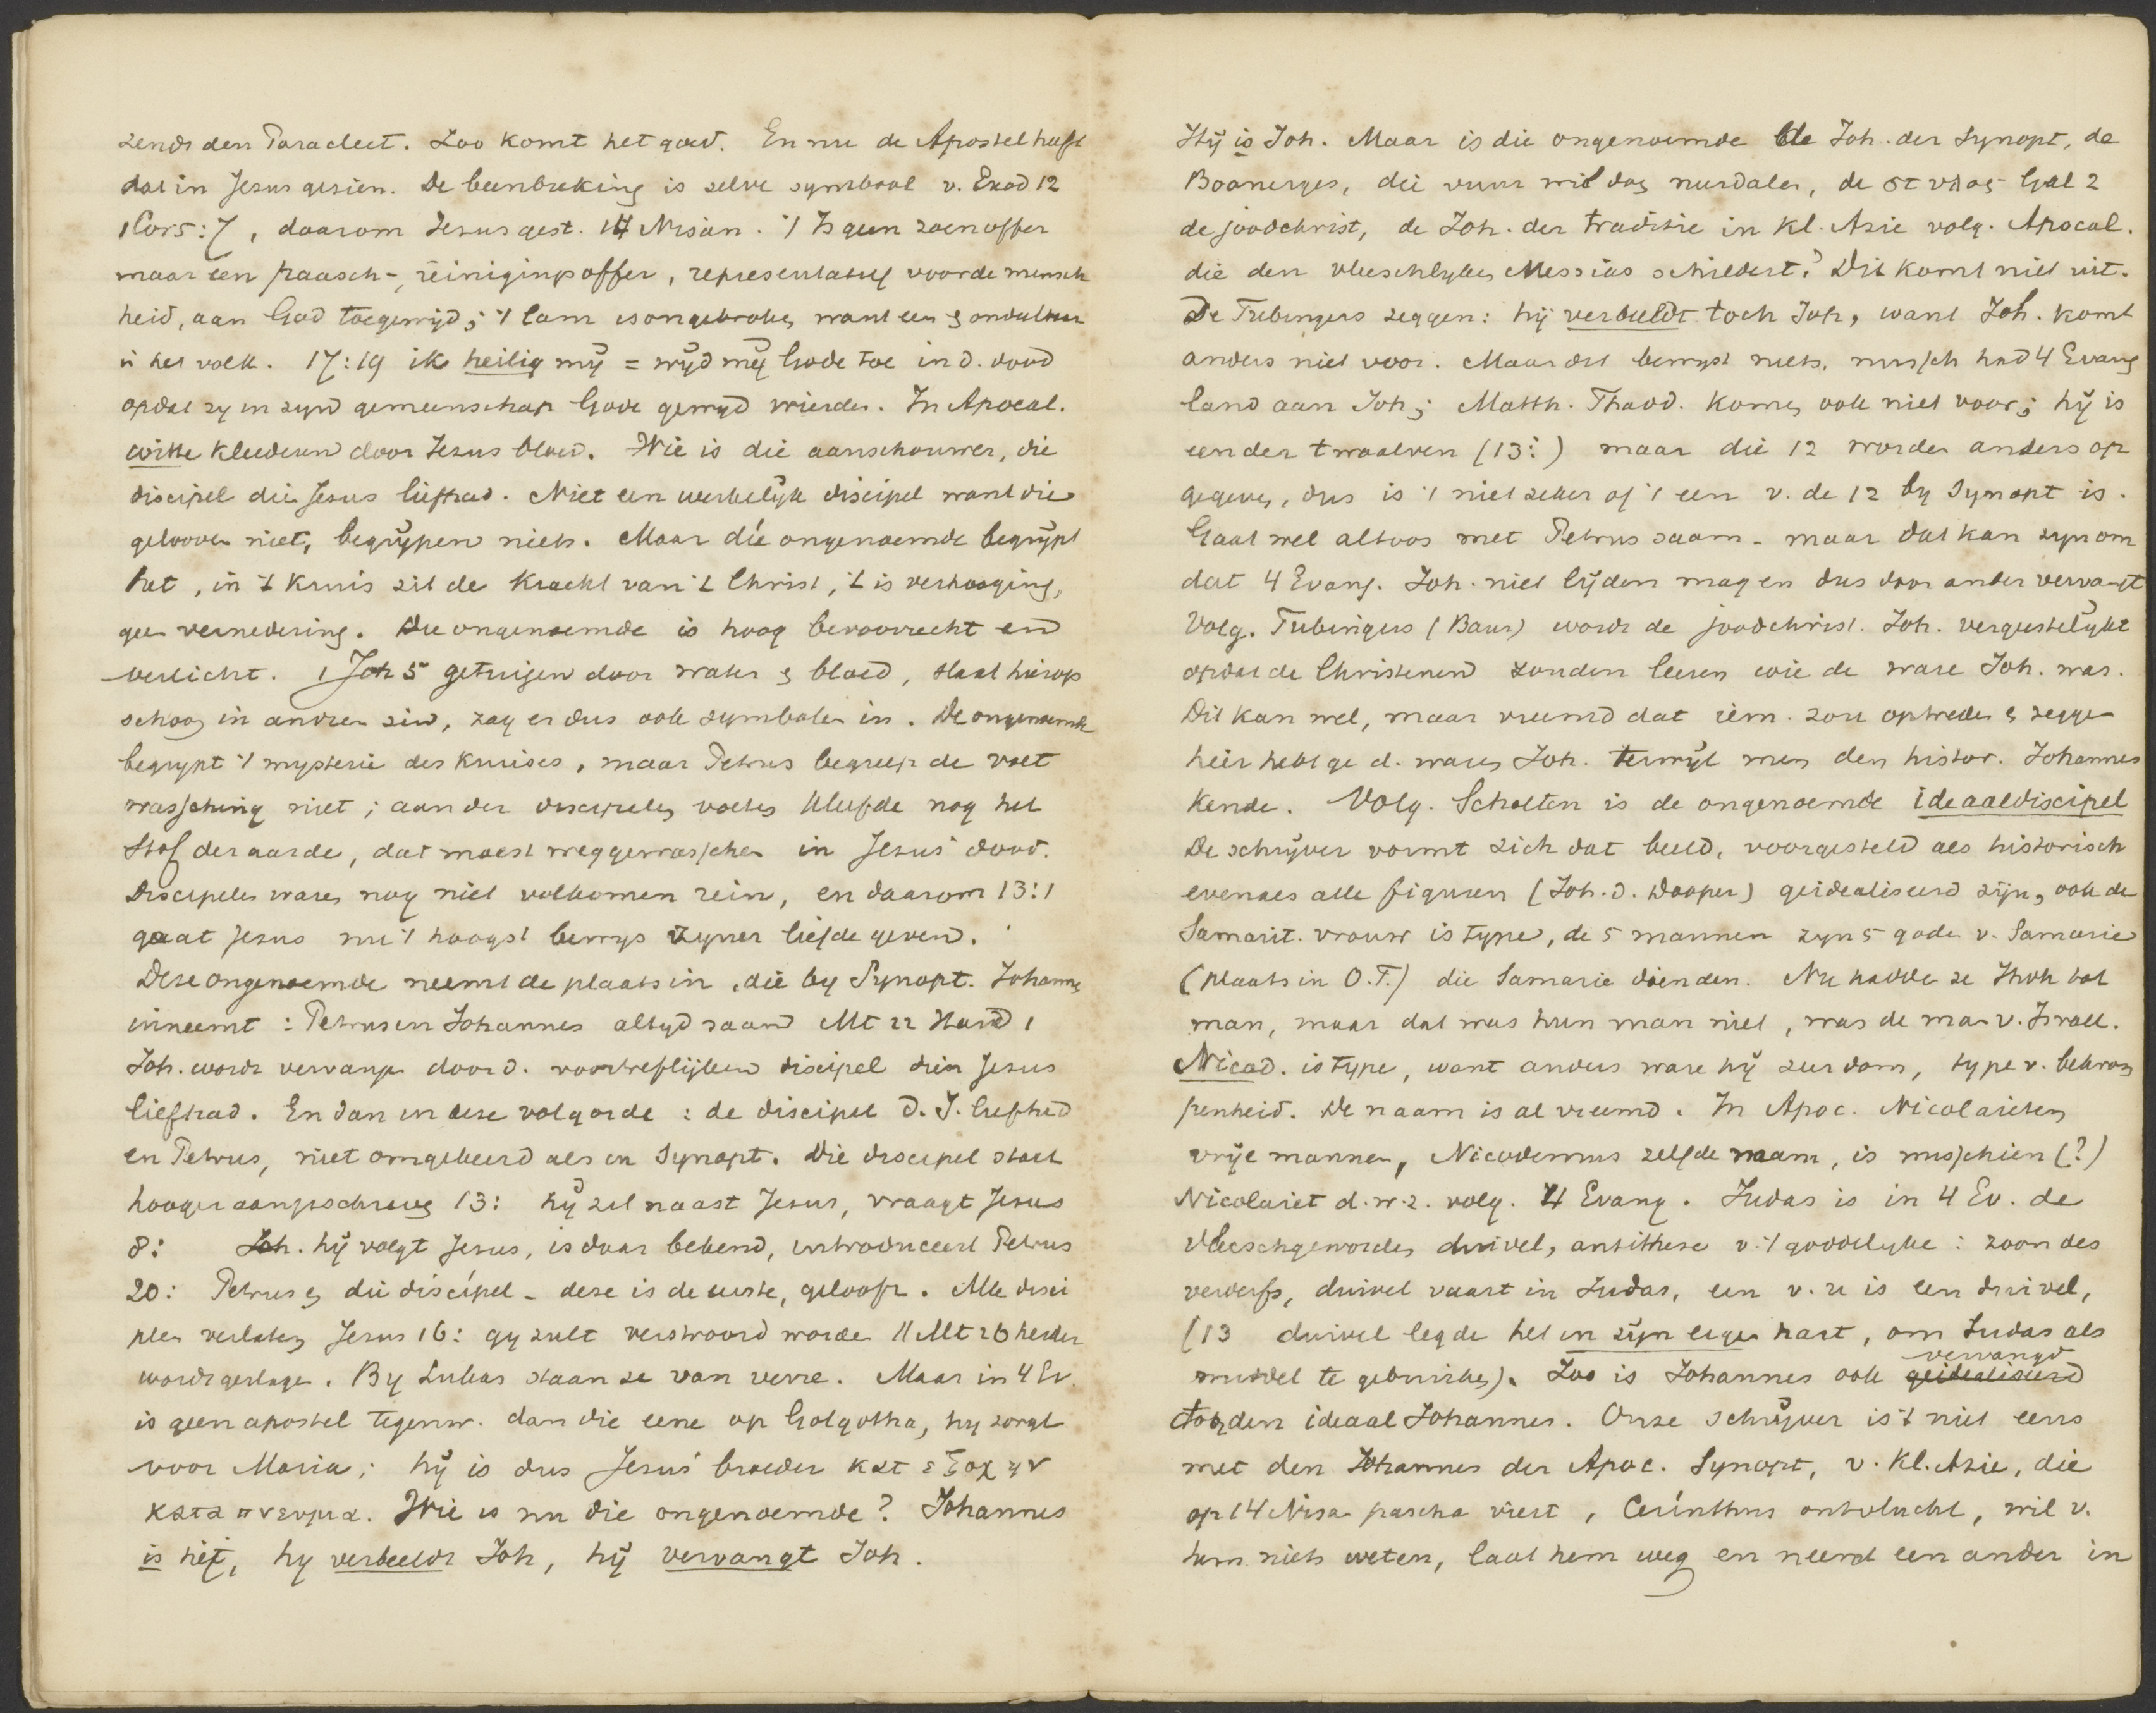 zendt den Paracleet. Zoo komt het goed. En nu de Apostel heeft
dat in Jezus gezien. De beenbreking is zelve symbool v. Exod 12
1 Cor 5:7, daarom Jezus gest. 14 Nisan. 't Is geen zoenoffer
maar een paasch-, reinigingsoffer, representatief voor de mensch
heid, aan God toegewijd; 't lam is ongebroken want een & ondeelbaar
is het volk. 17:19 ik heilig mij = wijd mij Gode toe in d. dood
opdat zy in zijn gemeenschap Gode gewijd wierden. In Apocal.
witte kleederen door Jezus bloed. Wie is die aanschouwer, die
discipel die Jezus liefhad. Niet een werkelijk discipel want die
gelooven niet, begrijpen niets. Maar díe ongenoemde begrijpt
het, in 't kruis zit de kracht van 't Christ, 't is verhooging,
geen vernedering. Die ongenoemde is hoog bevoorrecht en
verlicht. 1 Joh 5 getuigen door water & bloed, slaat hierop
schoon in andren zin, zag er dus ook symbolen in. De ongenoemde
begrypt 't mysterie des kruises, maar Petrus begreep de voet
wassching niet; aan der discipelen voeten kleefde nog het
stof der aarde, dat moest weggewasschen in Jezus' dood.
Discipelen waren nog niet volkomen rein, en daarom 13:1
gaat Jezus nu 't hoogst bewys zyner liefde geven.
Deze ongenoemde neemt de plaats in, die by Synopt. Johannes
inneemt: Petrus en Johannes altyd saam Mt 22 Hand 1
Joh. wordt vervangen door d. voortreflijken discipel dien Jezus
liefhad. En dan in deze volgorde: de discipel d. J. liefhad
en Petrus, niet omgekeerd als in Synopt. Die discipel staat
hooger aangeschreven 13: hij zit naast Jezus, vraagt Jezus
8: Joh. hij volgt Jezus, is daar bekend, introduceert Petrus
20: Petrus en die discipel - deze is de eerste, gelooft. Alle disci
pelen verlaten Jezus 16: gy zult verstrooid worden // Mt 26 herder
wordt geslagen. By Lukas staan ze van verre. Maar in 4 Ev.
is geen apostel tegenw. dan die eene op Golgotha, hy zorgt
voor Maria; hij is dus Jezus' broeder κατ εξοχην
κατα πνευμα. Wie is nu die ongenoemde? Johannes
is hij, hy verbeeldt Joh, hij vervangt Joh.
Hij is Joh. Maar is die ongenoemde de Joh. der Synopt, de
Boanerges, die vuur wil doen nerdalen, de στυλος Gal 2
de joodchrist, de Joh. der traditie in Kl. Azie volg. Apocal.
die den vleeschlyken Messias schildert? Dit komt niet uit.
De Tubingers zeggen: hij verbeeldt toch Joh, want Joh. komt
anders niet voor. Maar dit bewyst niets, missch had 4 Evang
land aan Joh; Matth. Thadd. komen ook niet voor; hij is
een der twaalven (13:) maar die 12 worden anders op
gegeven, dus is 't niet zeker of 't een v. de 12 by Synopt is.
Gaat wel altoos met Petrus saam - maar dat kan zyn om
dat 4 Evang. Joh. niet lijden mag en dus door ander vervangt
Volg. Tubingers (Baur) wordt de joodchrist. Joh. vergeestelykt
opdat de Christenen zouden leeren wie de ware Joh. was.
Dit kan wel, maar vreemd dat iem. zou optreden & zeggen
hier hebt ge d. waren Joh. terwijl men den histor. Johannes
kende. Volg. Scholten is de ongenoemde ideaaldiscipel
De schrijver vormt zich dat beeld, voorgesteld als historisch
evenals alle figuren (Joh. d. Dooper) geidealiseerd zijn, ook de
Samarit. vrouw is type, de 5 mannen zyn 5 goden v. Samarie
(plaats in O.T.) die Samarie dienden. Nu hadde ze Jhvh tot
man, maar dat was hun man niet, was de man v. Israel.
Nicod. is type, want anders ware hij zeer dom, type v. bekrom
penheid. De naam is al vreemd. In Apoc. Nicolaieten
vrije mannen, Nicodemus zelfde naam, is misschien (?)
Nicolaiet d.w.z. volg. 4 Evang. Judas is in 4 Ev. de
vleeschgeworden duivel, antithese v. 't goddelyke: zoon des
verderfs, duivel vaart in Judas, een v. u is een duivel,
(13 duivel legde het in zijn eigen hart, om Judas als
middel te gebruiken). Zoo is Johannes ook geidealiseerd vervangd
door den ideaal Johannes. Onze schrijver is 't niet eens
met den Johannes der Apoc. Synopt, v. Kl. Azie, die
op 14 Nisan pascha viert, Cerinthus ontvlucht, wil v.
hem niets weten, laat hem weg en neemt een ander in